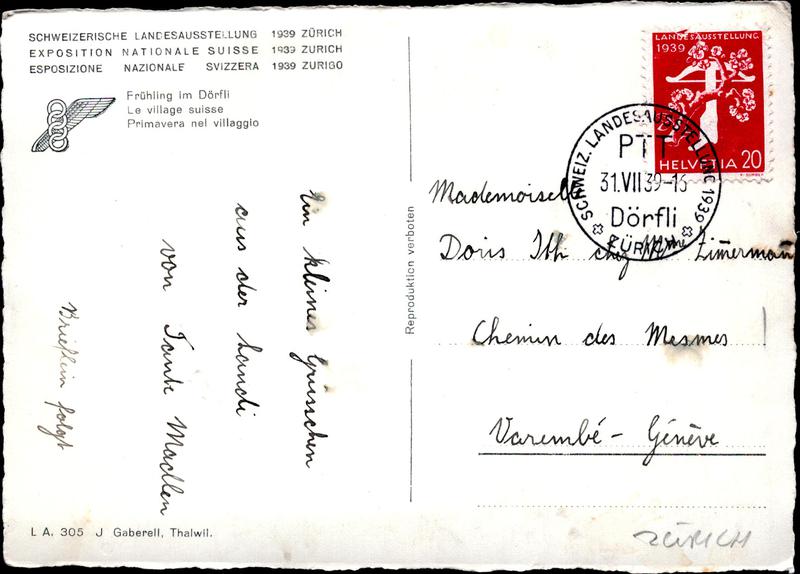 SCHWEIZERISCHE LANDESAUSSTELLUNG 1939 ZÜRICH
EXPOSITION NATIONALE SUISSE 1939 ZURICH
ESPOSIZIONE NAZIONALE SVIZZERA 1939 ZURIGO
Frühling im Dörfli
Le village suisse
Primavera nel villaggio
Ein kleines Grüsschen
aus der Landi
von Tante Madlen
Brieflein folgt
L A. 305 J Gaberell, Thalwil.
Reproduktion verboten
LANDESAUSSTELLUNG
1939
HELVETIA 20
SCHWEIZ. LANDESAUSSTELLUNG 1939
PTT
31.VII 39-13
Dörfli
ZÜRICH
Mademoiselle
Doris chez Mme Zimmermann
Chemin des Mesmes
Varembé - Génève
ZÜRICH